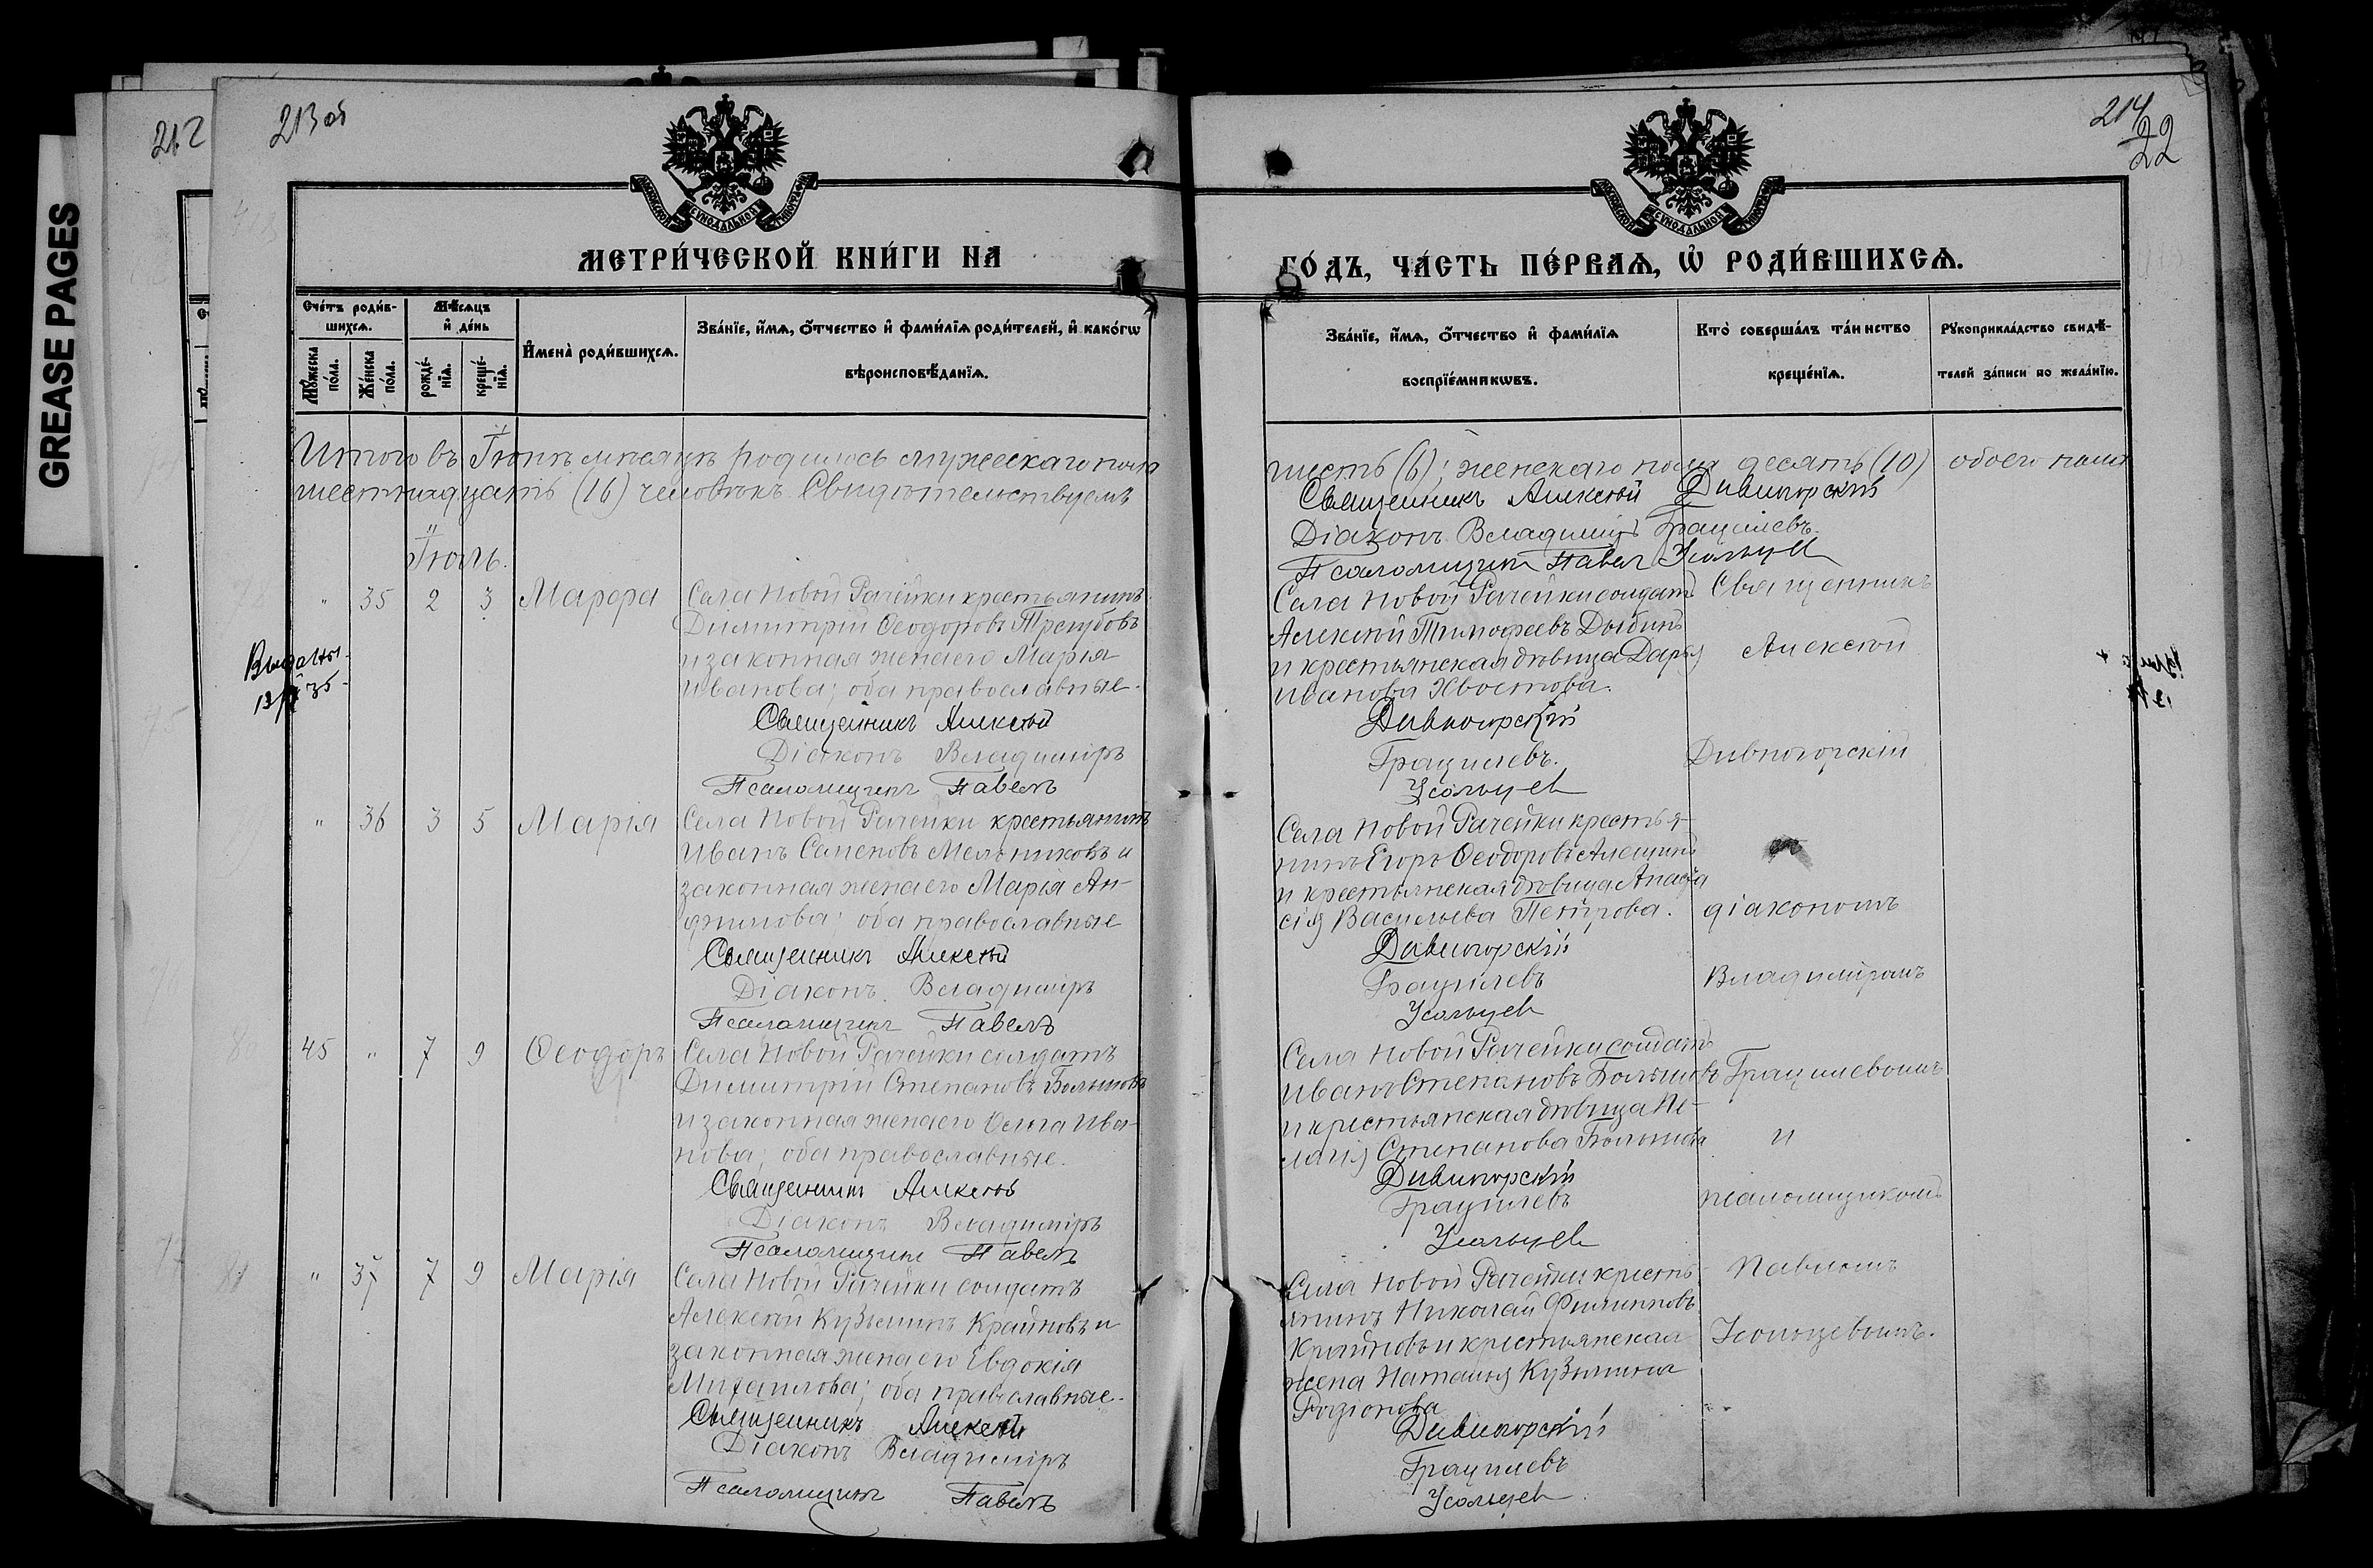 GREASE PAGES
212
213 об
МЕТРИ́ЧЕСКОЙ КНИ́ГИ НА
Сче́тъ роди́в-
шихсѧ.
Мѣ́сѧцъ
и҆ де́нь
Мꙋ́жеска
по́ла.
Же́нска
по́ла.
рожде́-
нїѧ.
креще́-
нїѧ.
И҆мена̀ роди́вшихсѧ.
Зва́нїе, и҆́мѧ, ѻ҆́тчество и҆ фами́лїѧ роди́телей, и҆ како́гѡ
вѣроисповѣ́данїѧ.
Итого въ Іюнѣ мѣсяцѣ родилось мужескаго пола
шестнадцать (16) человѣкъ. Свидѣтельствуемъ
Іюль.
" 35 2 3 Марѳа
Села Новой Рачейки крестьянинъ
Димитрій Ѳеодоровъ Трегубовъ
и законная жена его Марія
Иванова; оба православные.
Священникъ Алексѣй
Діаконъ Владиміръ
Псаломщикъ Павелъ
Выданы
" 36 3 5 Марія
Села Новой Рачейки крестьянинъ
Иванъ Семеновъ Мельниковъ и
законная жена его Марія Ан-
фимова; оба православные
Священникъ Алексѣй
Діаконъ Владиміръ
Псаломщикъ Павелъ
45 " 7 9 Ѳеодоръ
Села Новой Рачейки солдатъ
Димитрій Степановъ Большовъ
и законная жена его Ольга Ива-
нова; оба православные.
Священникъ Алексѣй
Діаконъ Владиміръ
Псаломщикъ Павелъ
" 37 7 9 Марія
Села Новой Рачейки солдатъ
Алексѣй Кузьминъ Крайновъ и
законная жена его Евдокія
Михаилова; оба православные.
Священникъ Алексѣй
Діаконъ Владиміръ
Псаломщикъ Павелъ
214
22
ГО́ДЪ, ЧА́СТЬ ПЕ́РВАѦ, Ѡ҆ РОДИ́ВШИХСѦ.
Зва́нїе, и҆́мѧ, ѻ҆́тчество и҆ фами́лїѧ
воспрїе́мникѡвъ.
Кто̀ соверша́лъ та́инство
креще́нїѧ.
Рꙋкоприкла́дство свидѣ́-
телей за́писи по жела́нїю.
шесть (6); женскаго пола десять (10) обоего пола
Священникъ Алексѣй Дивногорскій
Діаконъ Владиміръ Грацилевъ.
Псаломщикъ Павелъ Усольцев
Села Новой Рачейки солдатъ
Алексѣй Тимофеевъ Дыбинъ
и крестьянская дѣвица Дарья
Иванова Хвостова.
Дивногорскій
Грацилевъ.
Усольцев
Села Новой Рачейки крестья-
нинъ Егоръ Ѳеодоровъ Алешинъ
и крестьянская дѣвица Анаста
сія Васильева Петрова.
Дивногорскій
Грацилевъ
Усольцев
Села Новой Рачейки солдатъ
Иванъ Степановъ Большовъ
и крестьянская дѣвица Пе-
лагія Степанова Большова
Дивногорскій
Грацилевъ
Усольцев
Села Новой Рачейки кресть-
янинъ Николай Филипповъ
Крайновъ и крестьянская
жена Наталья Кузьмина
Родіонова
Дивногорскій
Грацилевъ
Усольцев
Священникъ
Алексѣй
Дивногорскій
діакономъ
Владиміромъ
Грацилевымъ
и
псаломщикомъ
Павломъ
Усольцевымъ.